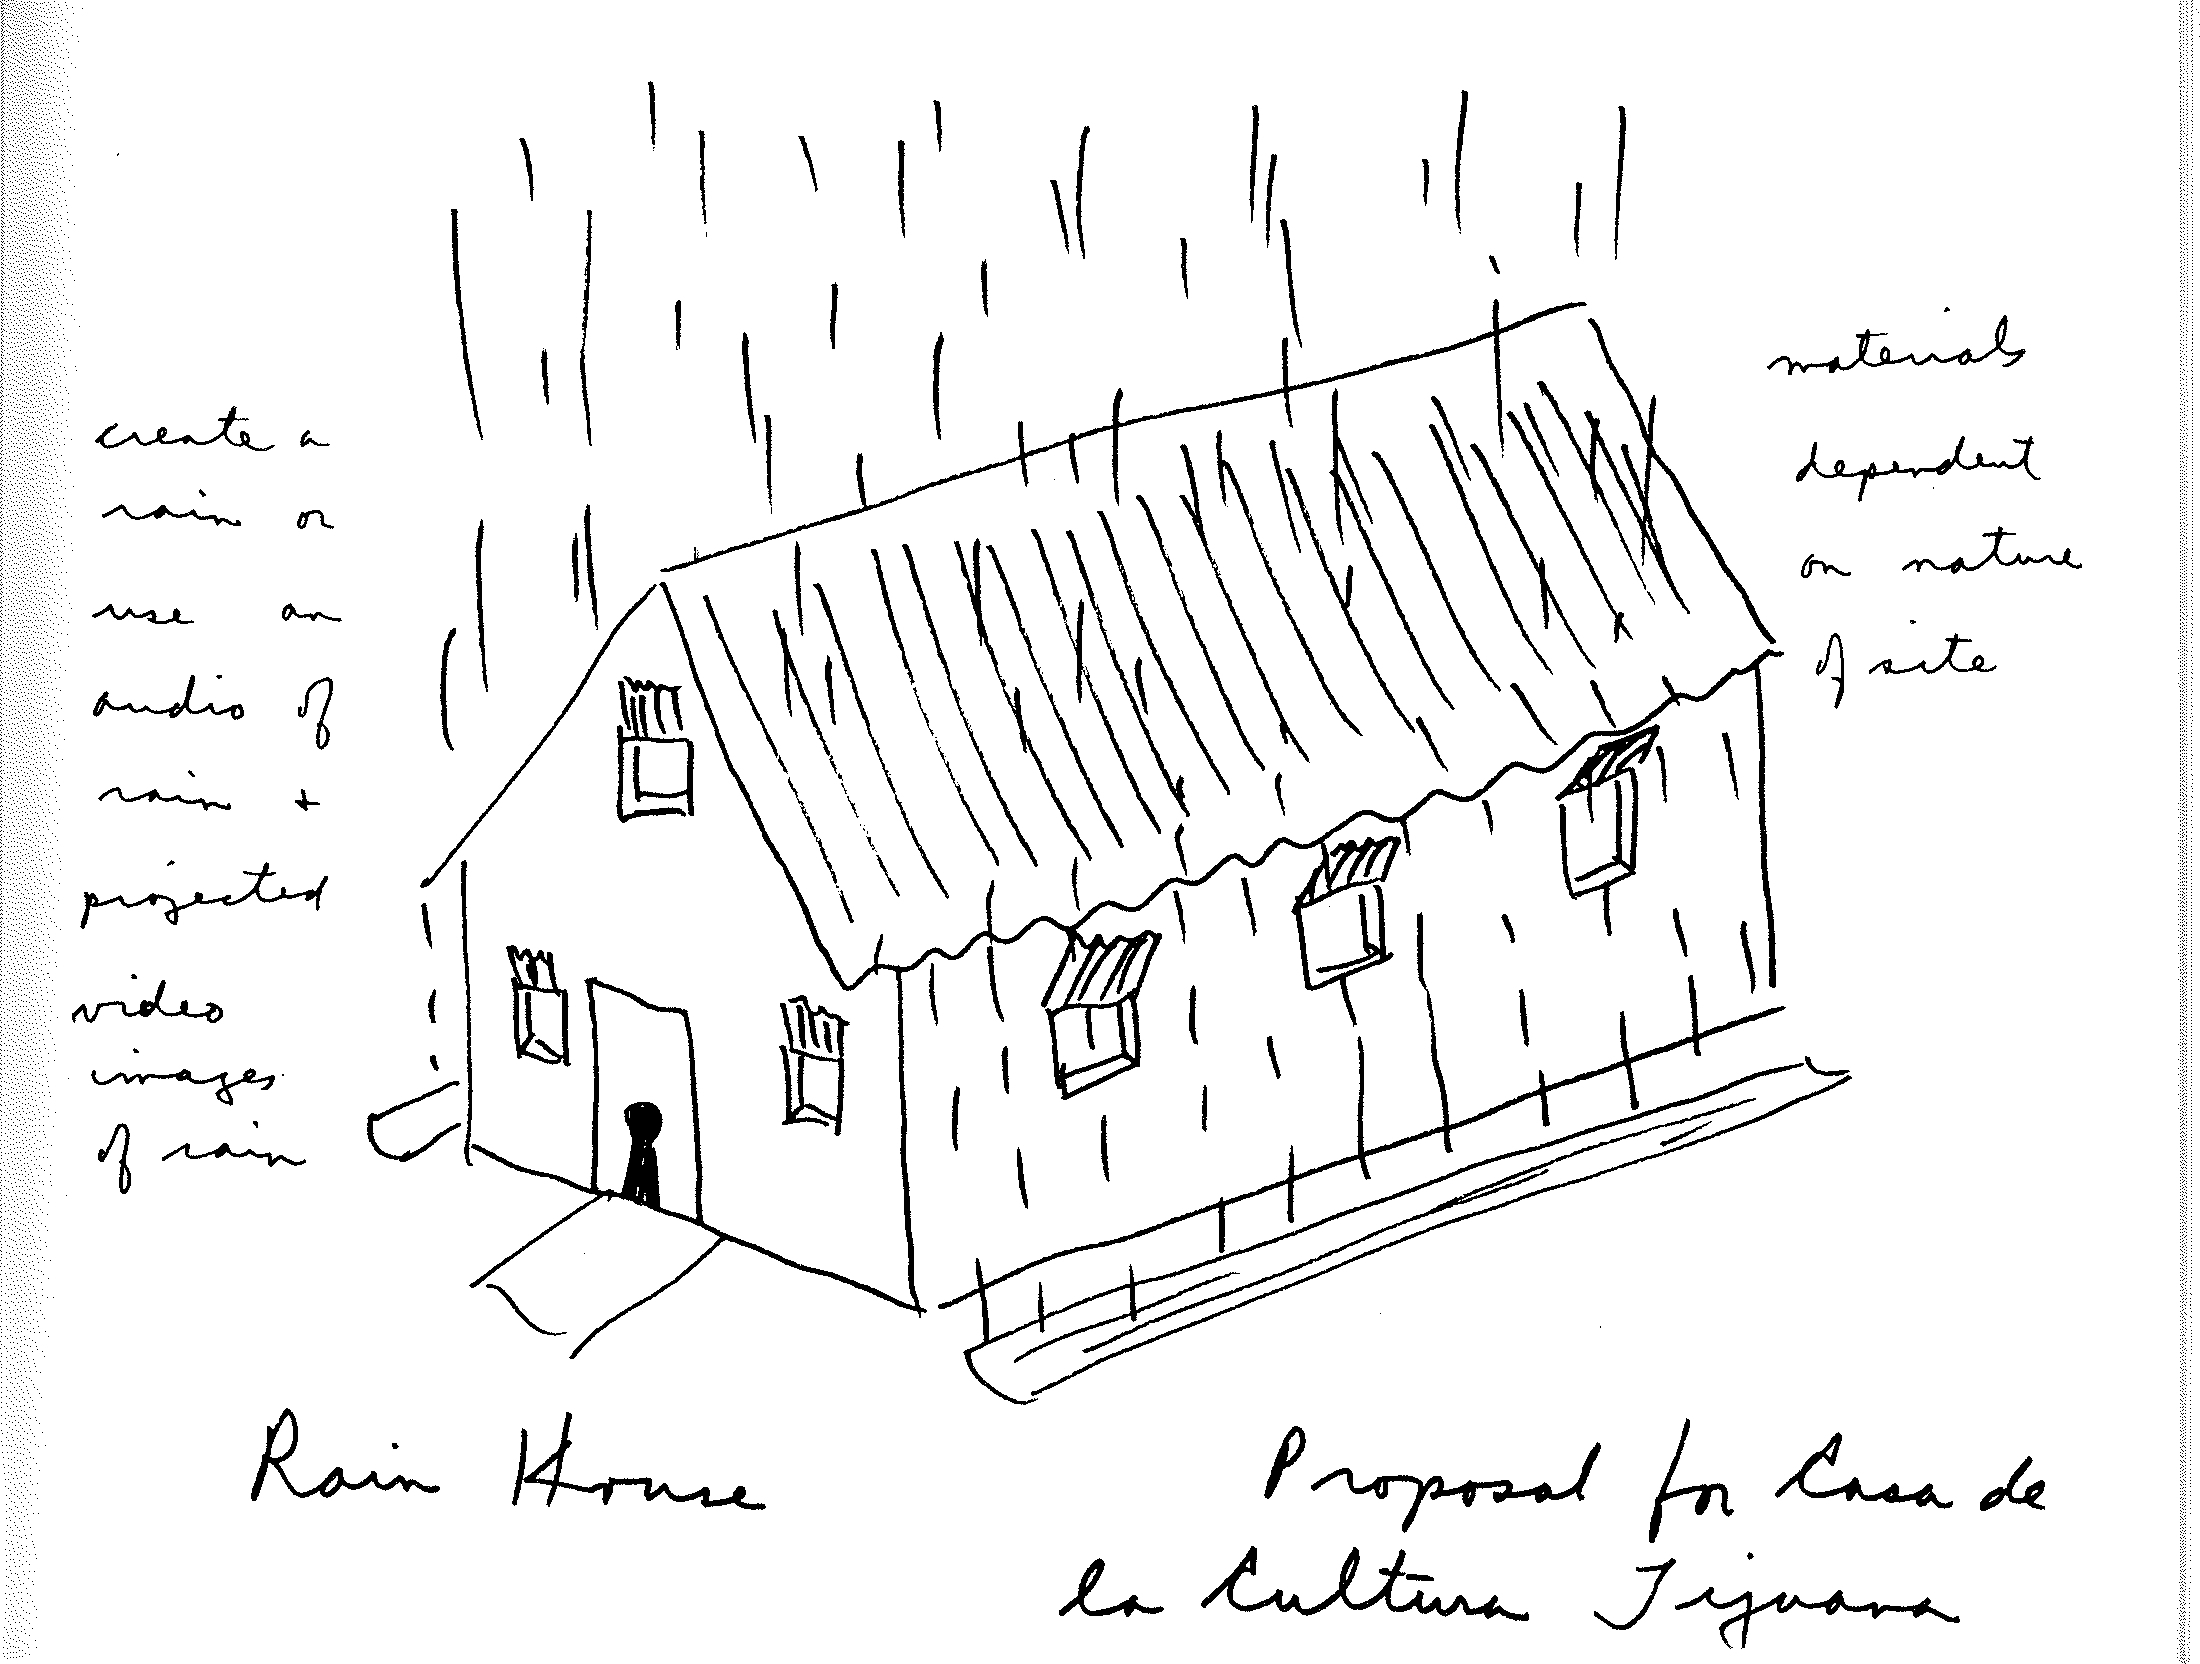 create a
rain or
use an
audio of
rain +
projected
video
images
of rain
materials
dependent
on nature
of site
Rain House
Proposal for Casa de
la Cultura Tijuana